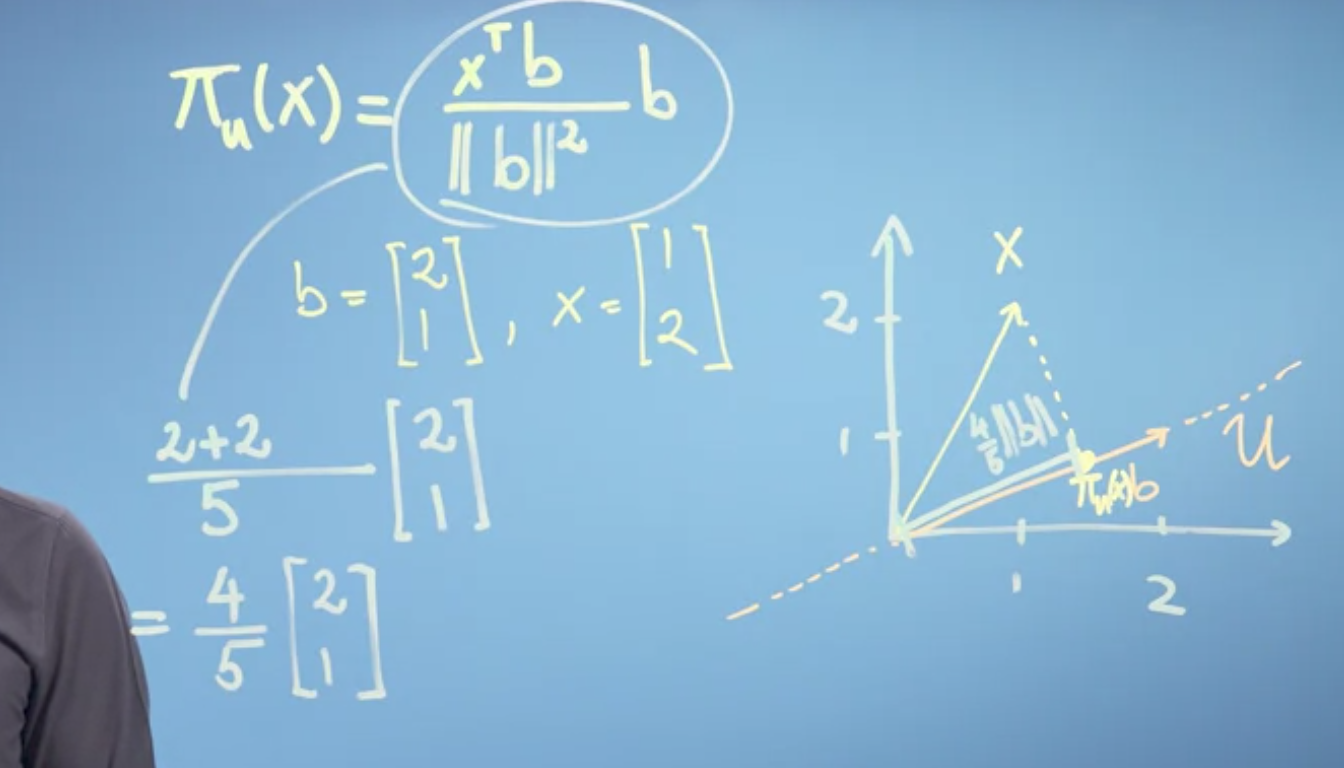 π_u(x) = xᵀb / ‖b‖² b
b = [2 1], x = [1 2]
2+2 / 5 [2 1]
= 4/5 [2 1]
x
2
1
4/5 ‖b‖
U
π_u(x) b
1 2